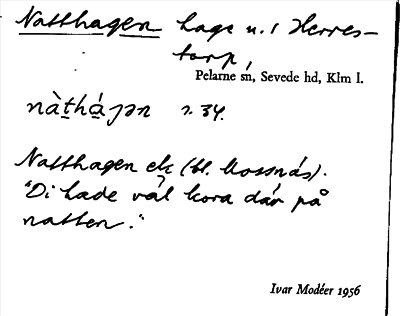 Natthagen hage u. / Herres-
torp,
Pelarne sn, Sevede hd, Klm l.
nàt̠há̠ɲən s. 34.
Natthagen ek (bl. Mossnäs).
"Di hade väl kora där på
natten."
Ivar Modéer 1956